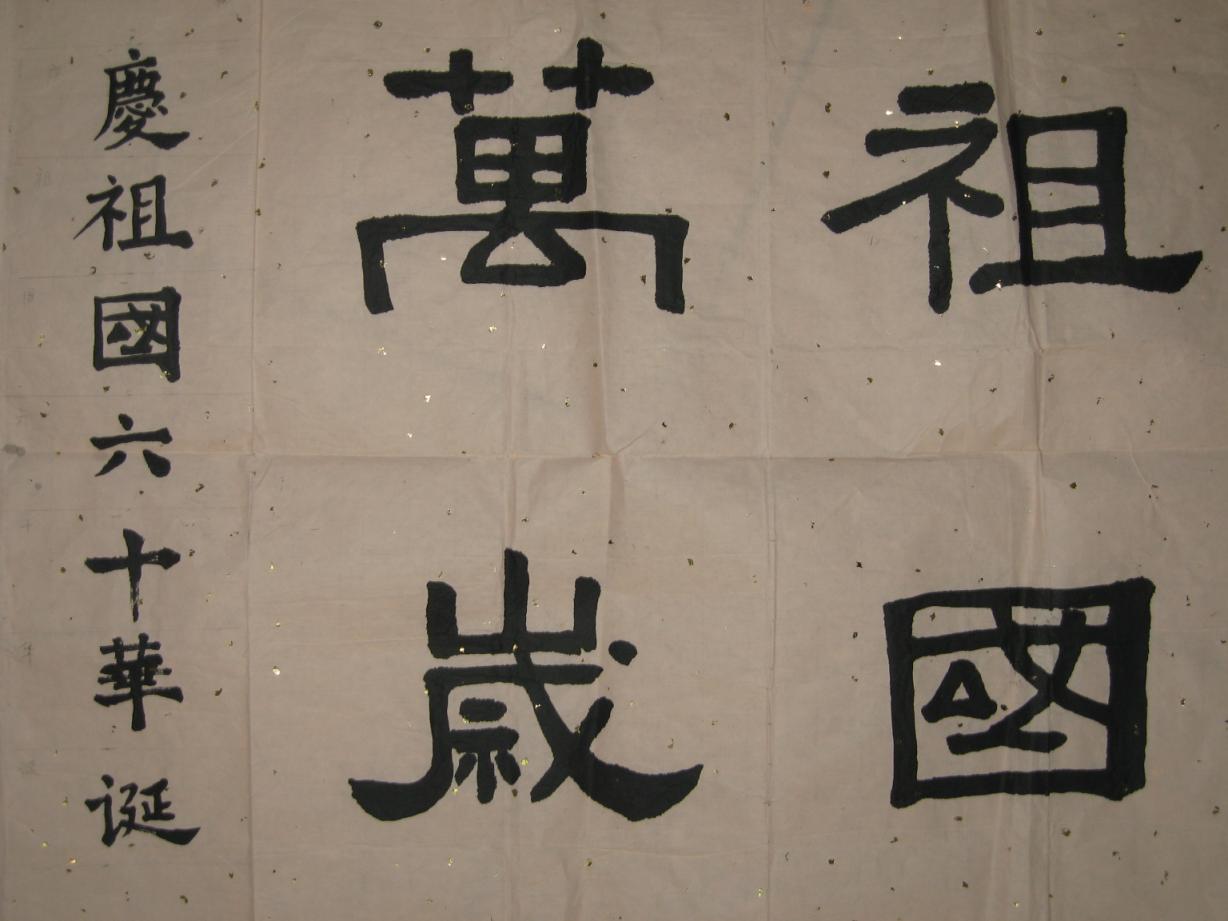 祖國
萬歲
慶祖國六十華诞